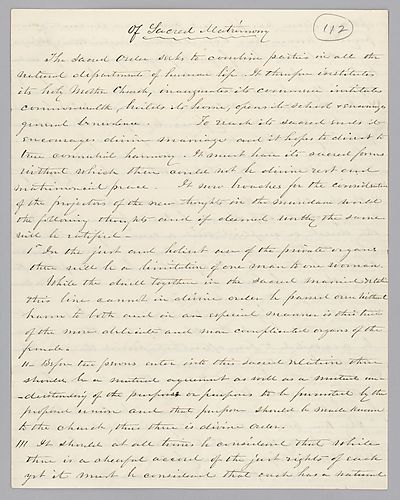 Of Sacred Matrimony
112
The Sacred Order seeks to combine parties in all the
natural departments of human life. It therefore institutes
its holy Mother Church, inaugurates its commerce institutes
commonwealth, builds its home, opens its school & encourages
general benevolence. To reach its sacred ends it
encourages divine marriage and it hopes to direct to
true connubial harmony. It must have its sacred forms
without which there could not be divine rest and
matrimonial peace. It now broaches for the consideration
of the projectors of the new thoughts in the mundane world
the following thoughts and if deemed worthy the same
will be ratified.
1st In the just and holiest use of the private organs
there will be a limitation of one man to one woman.
While the dwell together in the sacred married relation
this line cannot in divine order be passed over without
harm to both and in an especial manner is this true
of the more delicate and more complicated organs of the
female.
11 Before two persons enter into this sacred relation there
should be a mutual agreement as well as a mutual un-
-derstanding of the purpose or purposes to be promoted by the
proposed union and that purpose should be made known
to the church, thus there is divine order.
111 It should at all times be considered that while
there is a cheerful accord of the just rights of each
yet it must be considered that each has a natural